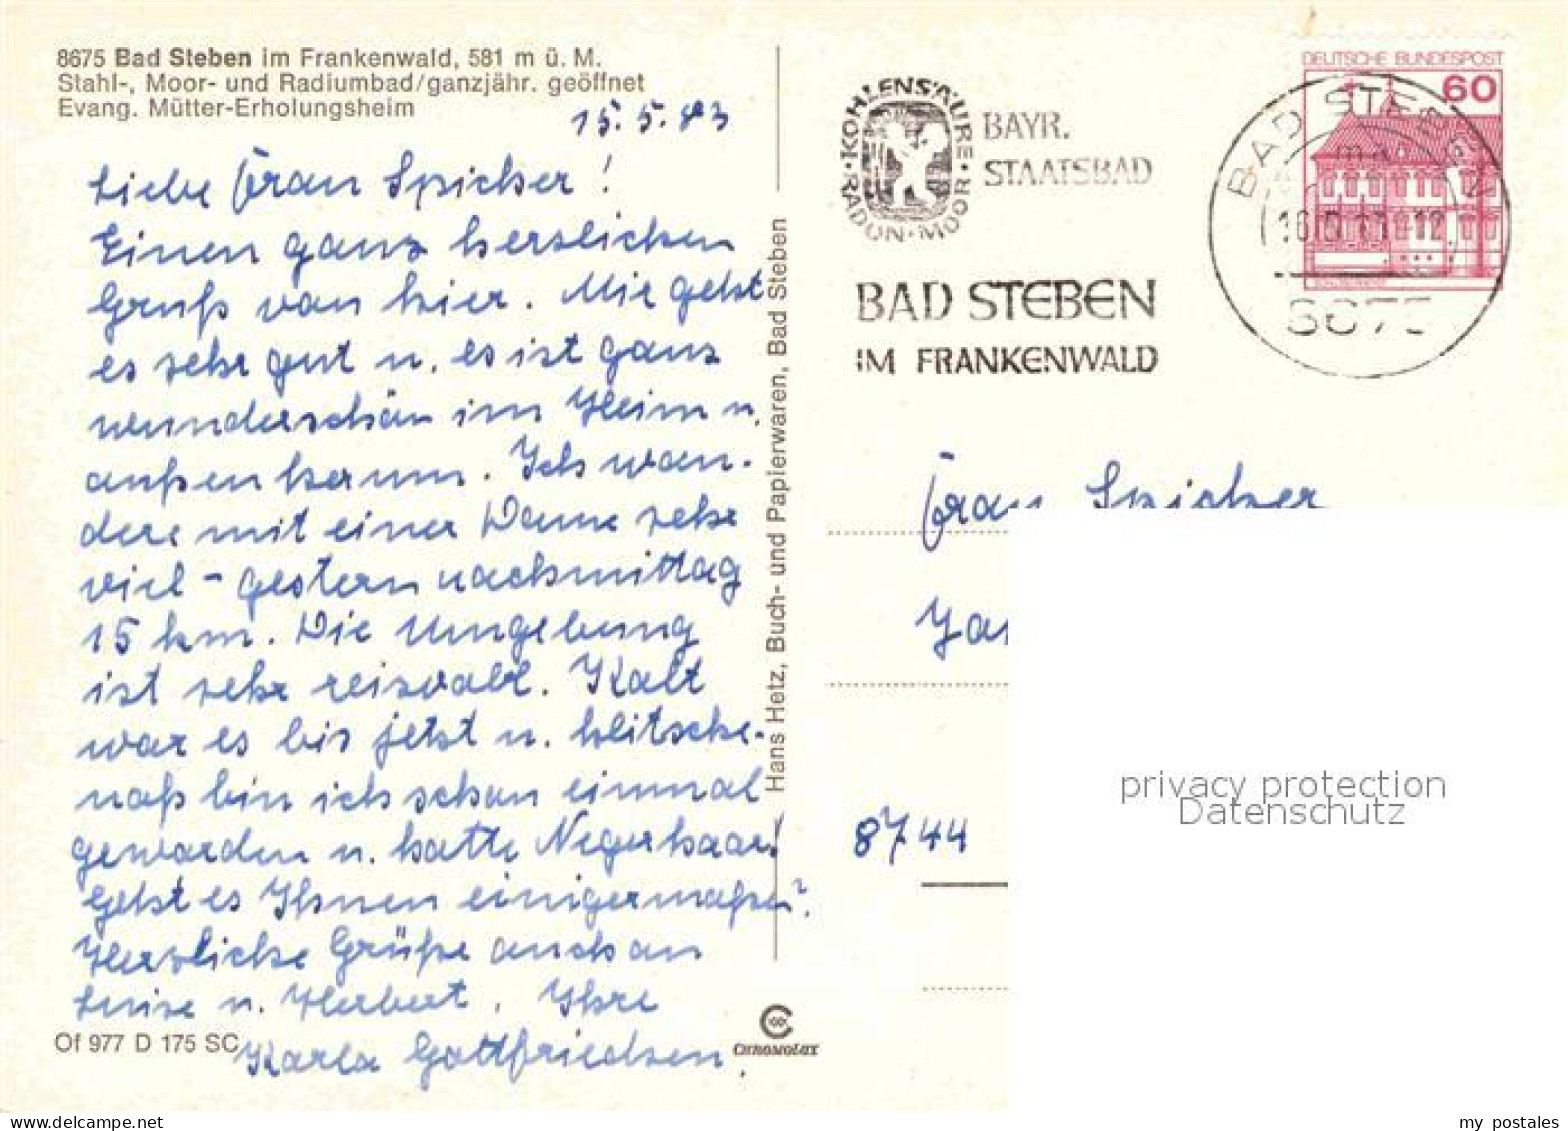 8675 Bad Steben im Frankenwald, 581 m ü. M.
Stahl-, Moor- und Radiumbad/ganzjähr. geöffnet
Evang. Mütter-Erholungsheim
15. 5. 83
Liebe Frau Spicker!
Einen ganz herzlichen
Gruß von hier. Mir geht
es sehr gut u. es ist ganz
wunderschön im Heim u.
außenherum. Ich wan-
dere mit einer Dame sehr
viel - gestern nachmittag
15 km. Die Umgebung
ist sehr reizvoll. Kalt
war es bis jetzt u. klitsche-
naß bin ich schon einmal
geworden u. hatte Negerhaar!
Geht es Ihnen einigermaßen?
Herzliche Grüße auch an
Luise u. Herbert, Ihre
Karla Gottfriedsen.
Of 977 D 175 SC
CHROMOLUX
Hans Hetz, Buch- und Papierwaren, Bad Steben
KOHLENSÄURE · MOOR · RADON ·
BAYR.
STAATSBAD
BAD STEBEN
IM FRANKENWALD
DEUTSCHE BUNDESPOST
60
BAD STEBEN
8675
Frau Spicker
8744
privacy protection
Datenschutz
my postales